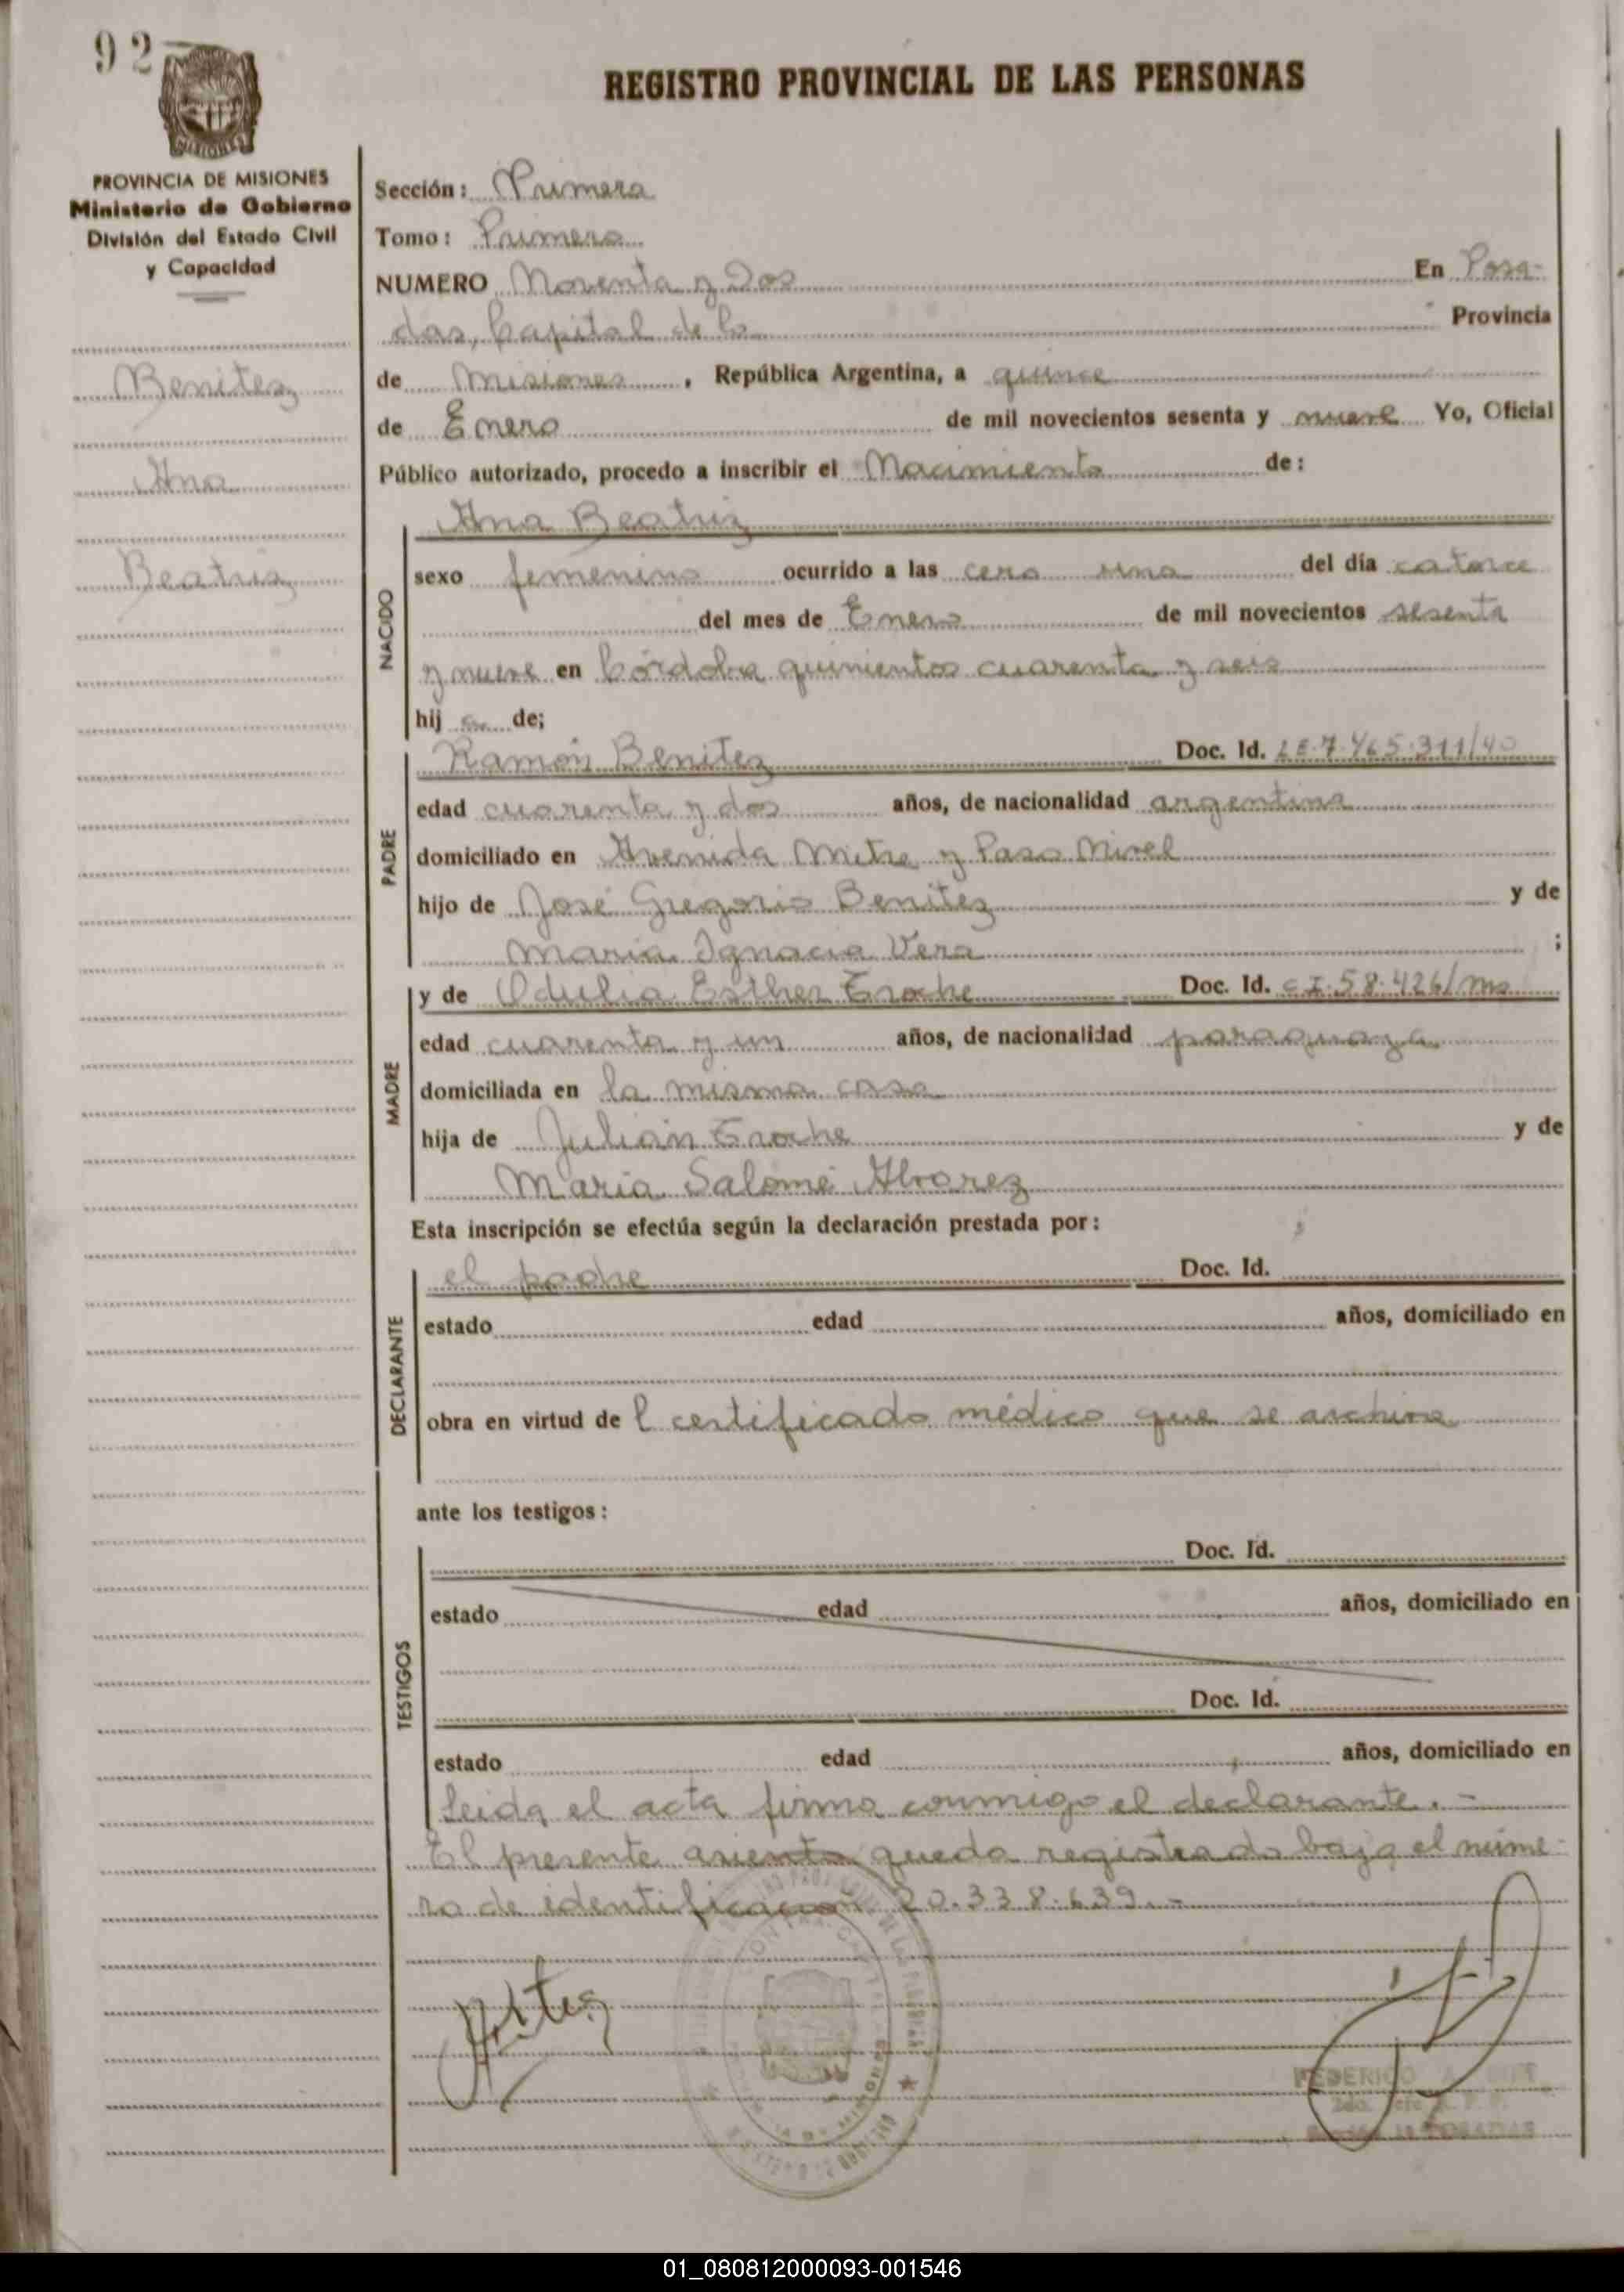 92
REGISTRO PROVINCIAL DE LAS PERSONAS
PROVINCIA DE MISIONES
Ministerio de Gobierno
División del Estado Civil
y Capacidad
Benitez
Ana
Beatriz
Sección: Primera
Tomo: Primero
NUMERO Noventa y Dos En Posa-
das, Capital de la Provincia
de Misiones, República Argentina, a quince
de Enero de mil novecientos sesenta y nueve Yo, Oficial
Público autorizado, procedo a inscribir el Nacimiento de:
NACIDO
Ana Beatriz
sexo femenino ocurrido a las cero una del día catorce
del mes de Enero de mil novecientos sesenta
y nueve en Córdoba quinientos cuarenta y seis
hij a de;
PADRE
Ramón Benitez Doc. Id. LE.7.465.311/40
edad cuarenta y dos años, de nacionalidad argentina
domiciliado en Avenida Mitre y Paso Nivel
hijo de José Gregorio Benitez y de
Maria Ignacia Vera ;
MADRE
y de Odulia Esther Eroche Doc. Id. C I.58.426/Ms
edad cuarenta y un años, de nacionalidad paraguaya
domiciliada en la misma casa
hija de Julián Eroche y de
Maria Salomé Alvarez
Esta inscripción se efectúa según la declaración prestada por:
DECLARANTE
el padre Doc. Id.
estado edad años, domiciliado en
obra en virtud de l certificado médico que se archiva
ante los testigos:
TESTIGOS
Doc. Id.
estado edad años, domiciliado en
Doc. Id.
estado edad años, domiciliado en
Leida el acta firma conmigo el declarante.-
El presente asiento queda registrado bajo el núme-
ro de identificacion 20.338.639.-
FEDERICO
01_080812000093-001546